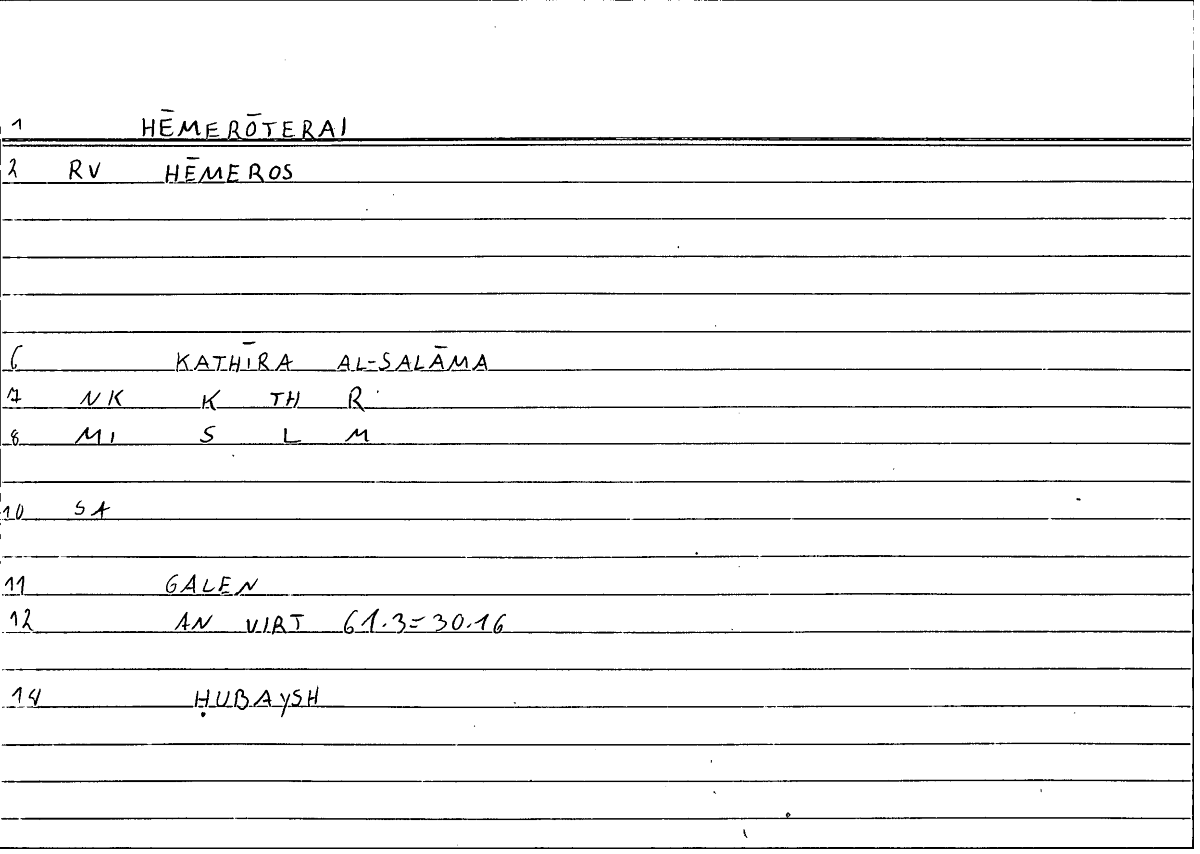 1 HĒMERŌTERAI
2 RV HĒMEROS
6 KATHĪRA AL-SALĀMA
7 NK K TH R
8 MI S L M
10 SA
11 GALEN
12 AN VIRT 61.3=30.16
14 ḤUBAYSH